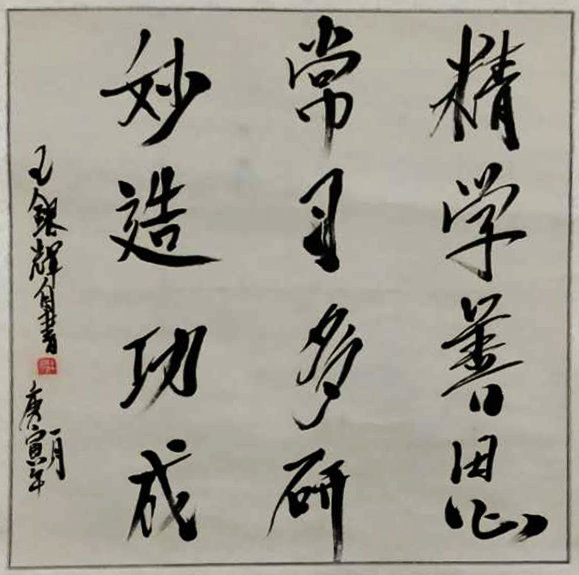 精学善思
常习多研
妙造功成
王銀輝自書
庚寅年
一月